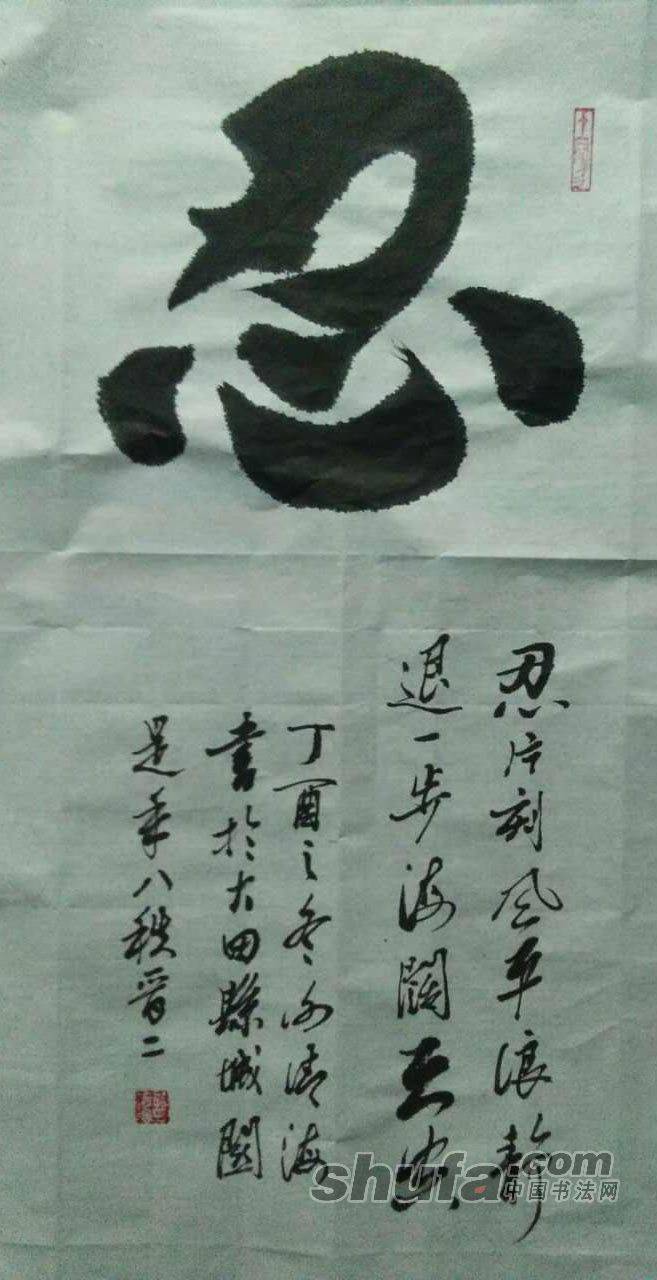 忍
忍片刻风平浪靜
退一步海闊天空
丁酉之冬清海
書於大田縣城關
是年八秩晋二
shufa.com
中国书法网